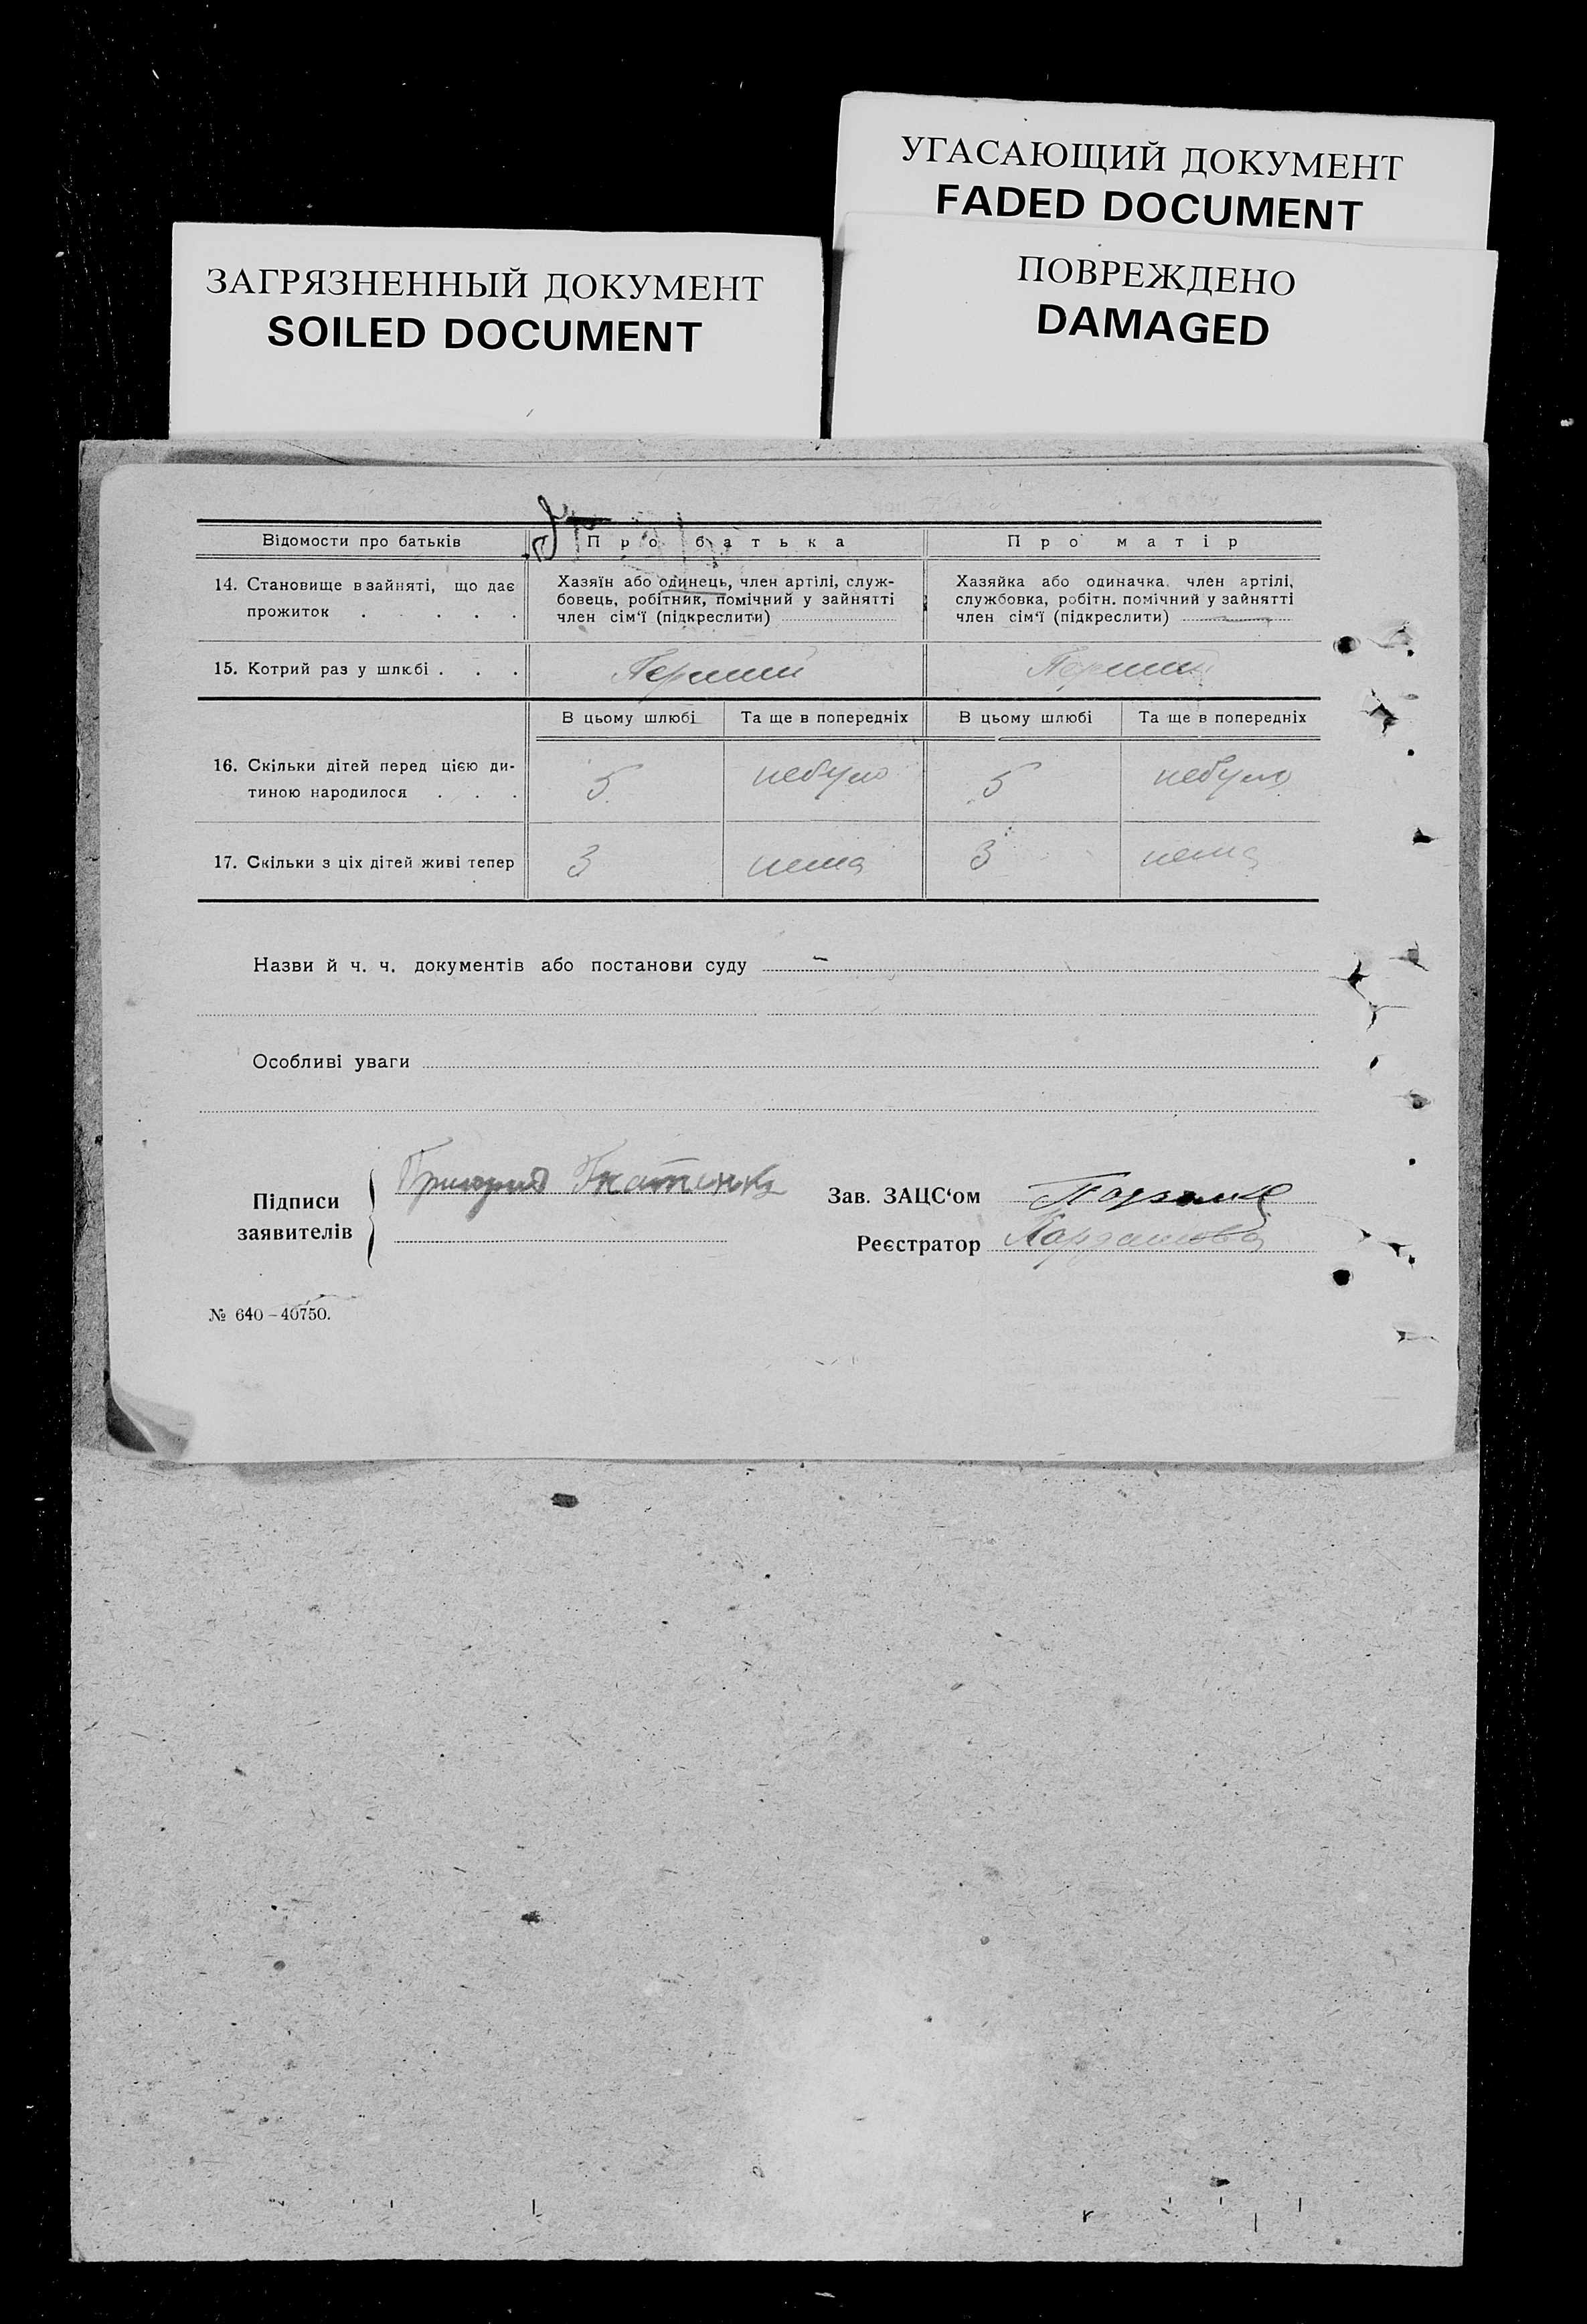 УГАСАЮЩИЙ ДОКУМЕНТ
FADED DOCUMENT
ЗАГРЯЗНЕННЫЙ ДОКУМЕНТ
SOILED DOCUMENT
ПОВРЕЖДЕНО
DAMAGED
Відомости про батьків Про батька Про матір
14. Становище в зайняті, що дає
прожиток . . . .
Хазяїн або одинець, член артілі, служ-
бовець, робітник, помічний у зайнятті
член сім'ї (підкреслити)
Хазяйка або одиначка, член артілі,
службовка, робітн. помічний у зайнятті
член сім'ї (підкреслити)
15. Котрий раз у шлюбі . . . Перший Перший
В цьому шлюбі Та ще в попередніх В цьому шлюбі Та ще в попередніх
16. Скільки дітей перед цією ди-
тиною народилося . . . 5 небуло 5 небуло
17. Скільки з ціх дітей живі тепер 3 нема 3 нема
Назви й ч. ч. документів або постанови суду –
Особливі уваги
Підписи
заявителів
Григорий
Зав. ЗАЦС'ом
Реєстратор
№ 640–40750.